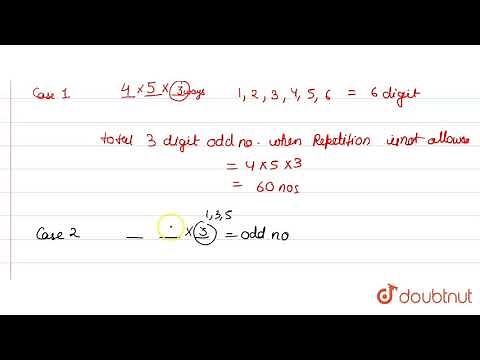 Case 1 4 × 5 × 3 ways 1, 2, 3, 4, 5, 6 = 6 digit
total 3 digit odd no. when Repetition is not allowe
= 4 × 5 × 3
= 60 nos
1, 3, 5
Case 2 _ _ × 3 = odd no
doubtnut